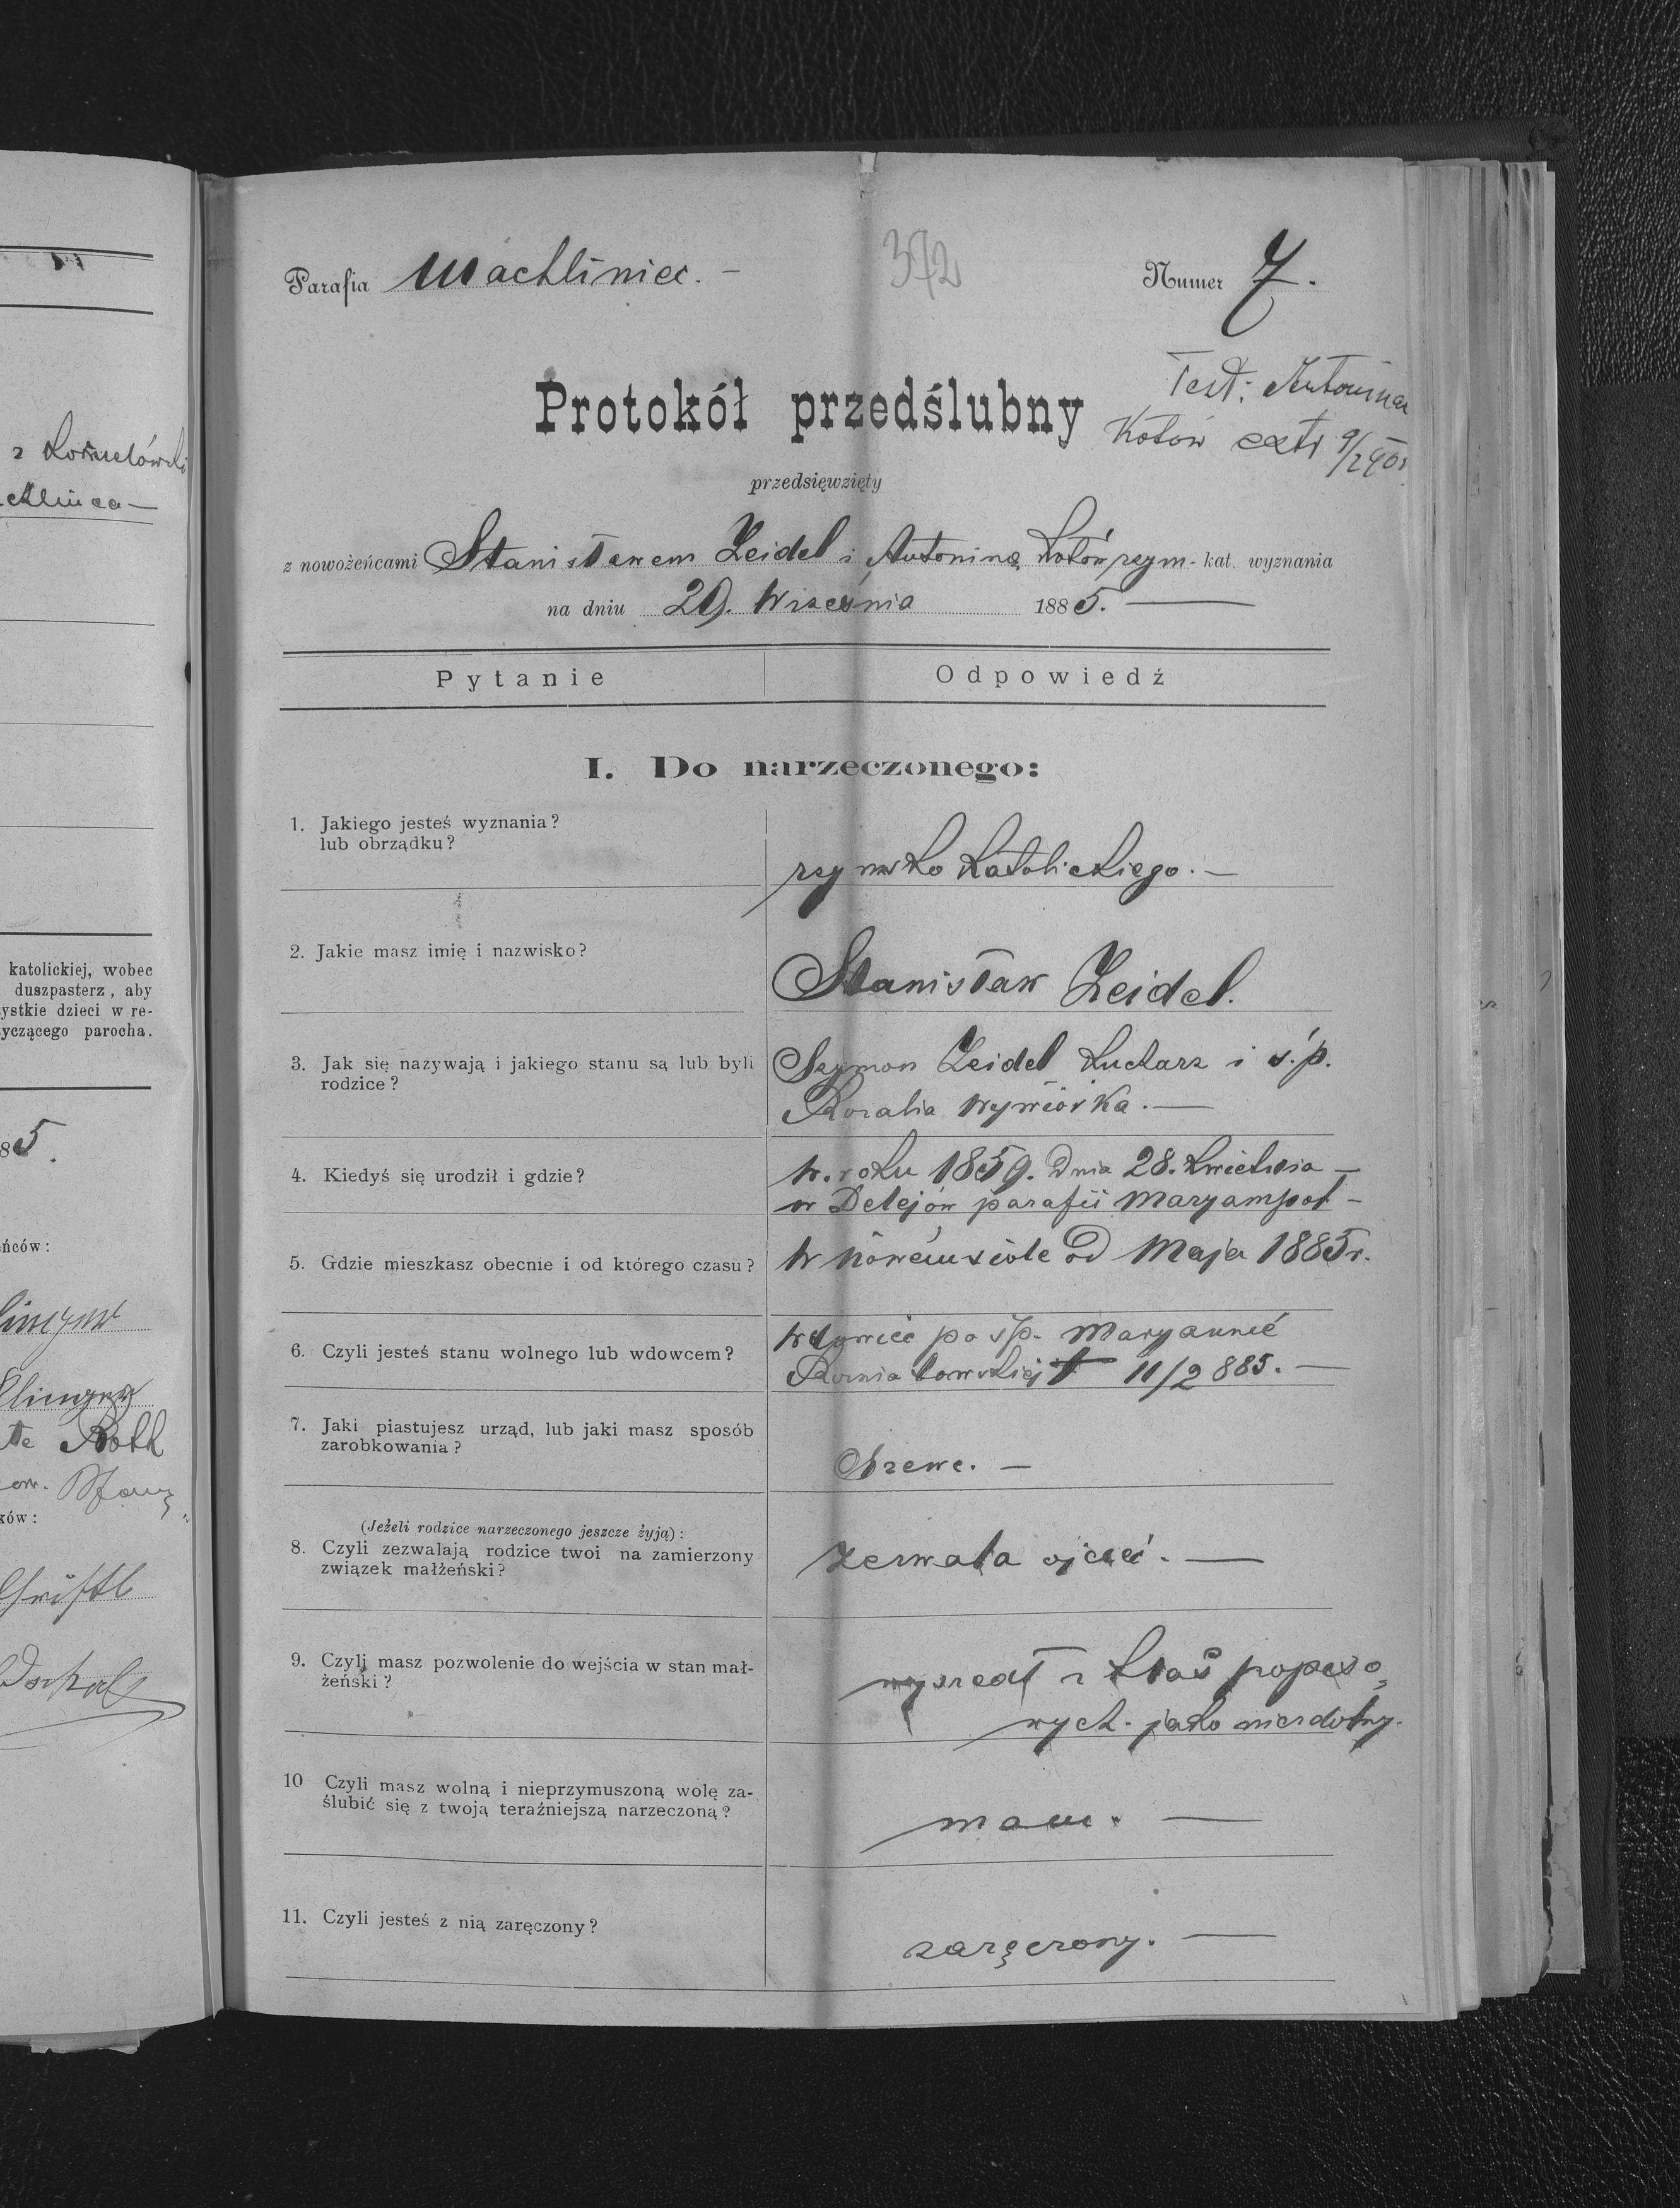 z
Parafia Machliniec. –
372
Numer 7.
Test: Antonina
Kotów extr 9/2 90
Protokół przedślubny
przedsięwzięty
z nowożeńcami Stanisławem Zeidel i Antoniną Kotów rzym - kat. wyznania
na dniu 29. Września 1885. —
Pytanie
Odpowiedź
I. Do narzeczonego:
1. Jakiego jesteś wyznania?
lub obrządku?
rzymsko katolickiego. –
2. Jakie masz imię i nazwisko?
Stanisław Zeidel.
3. Jak się nazywają i jakiego stanu są lub byli
rodzice?
Szymon Zeidel kucharz i ś.p.
Rozalia Wywiórka. —
4. Kiedyś się urodził i gdzie?
w roku 1859. dnia 28. kwietnia –
w Delejów parafii Maryampol –
5. Gdzie mieszkasz obecnie i od którego czasu?
w Nowemsiole od Maja 1885 r.
6. Czyli jesteś stanu wolnego lub wdowcem?
wdowiec po śp. Maryannie
† 11/2 885. —
7. Jaki piastujesz urząd, lub jaki masz sposób
zarobkowania?
Szewc. –
(Jeżeli rodzice narzeczonego jeszcze żyją):
8. Czyli zezwalają rodzice twoi na zamierzony
związek małżeński?
zezwala ojciec. —
9. Czyli masz pozwolenie do wejścia w stan mał-
żeński?
wyszedł z klas popiso„
wych - jako niezdolny.
10 Czyli masz wolną i nieprzymuszoną wolę za-
ślubić się z twoją teraźniejszą narzeczoną?
mam. —
11. Czyli jesteś z nią zaręczony?
zaręczony. —
katolickiej, wobec
duszpasterz, aby
ystkie dzieci w re-
yczącego parocha.
85.
ńców:
Roth
ków: